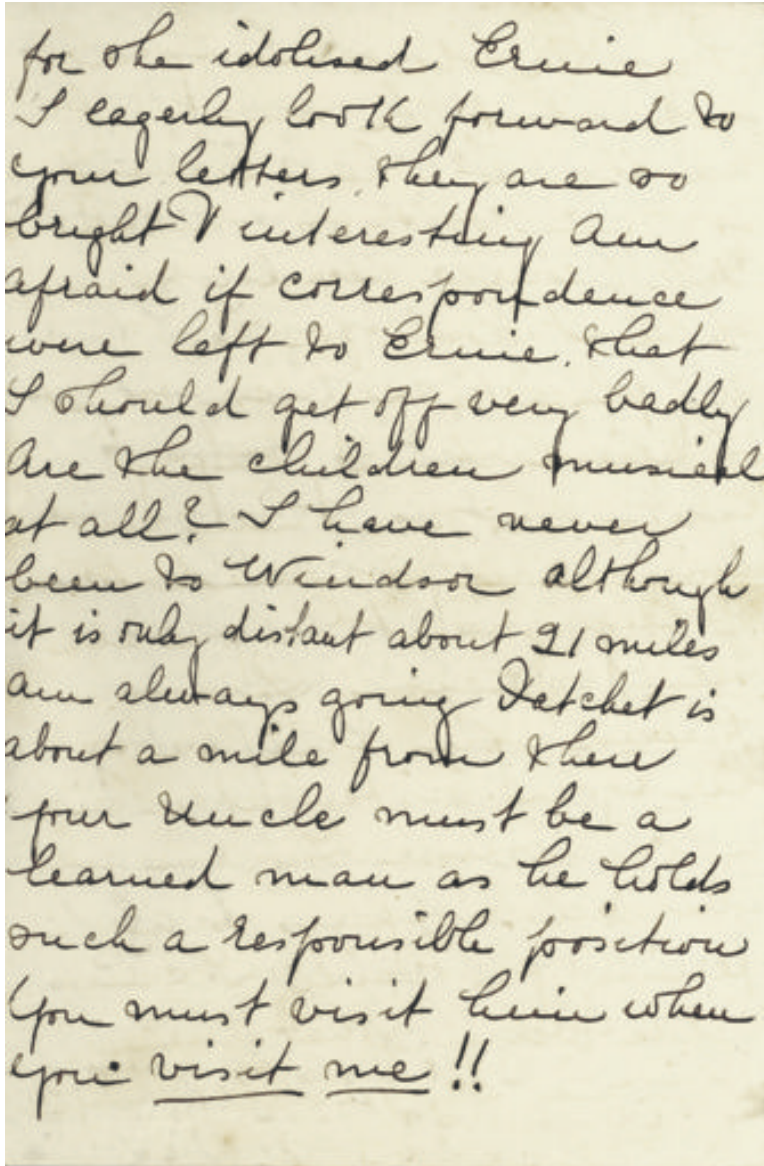 for she idolised Ernie
I eagerly look forward to
your letters, they are so
bright & interesting Am
afraid if correspondence
were left to Ernie, that
I should get off very badly
Are the children musical
at all? I have never
been to Windsor although
it is only distant about 21 miles
am always going Datchet is
about a mile from there
your Uncle must be a
learned man as he holds
such a responsible position
You must visit him when
you visit me!!